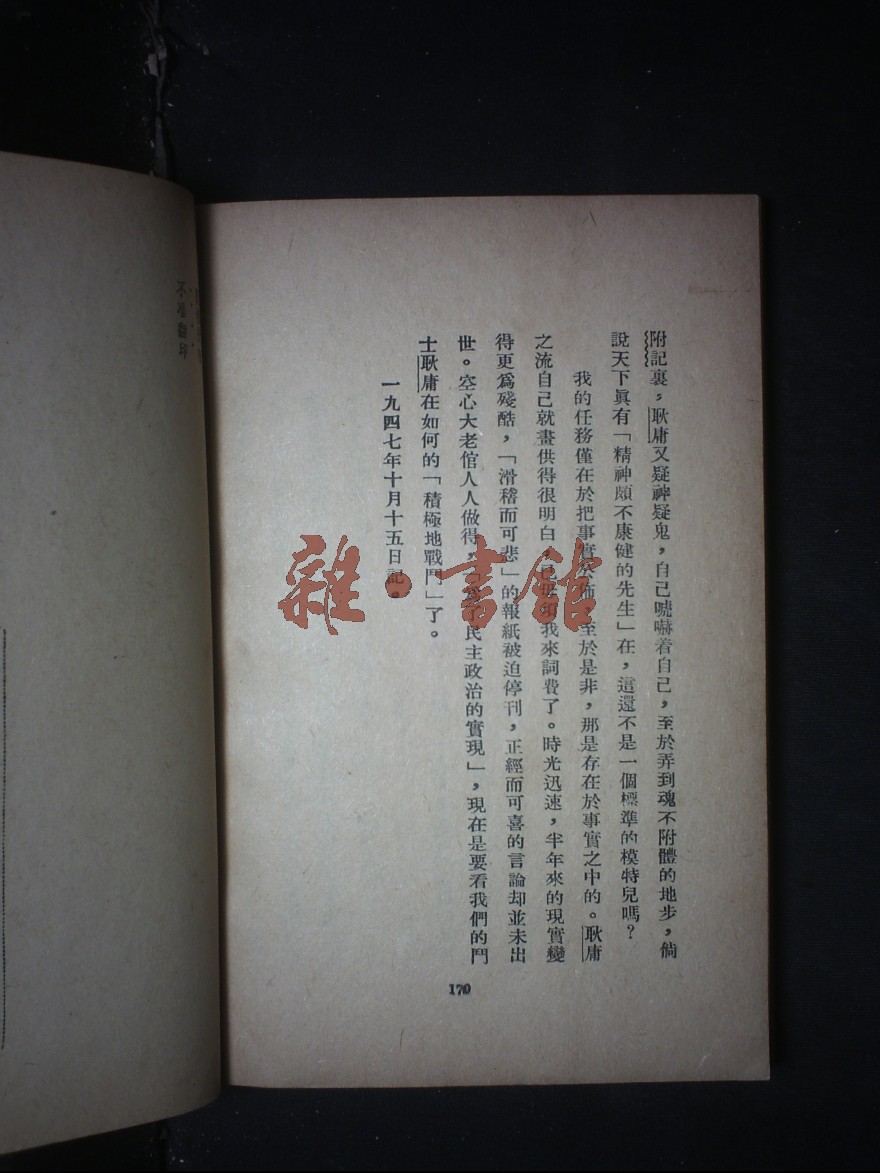 附記裏，耿庸又疑神疑鬼，自己唬嚇着自己，至於弄到魂不附體的地步，倘
說天下眞有「精神頗不康健的先生」在，這還不是一個標準的模特兒嗎？
我的任務僅在於把事實公佈，至於是非，那是存在於事實之中的。耿庸
之流自己就畫供得很明白，我來詞費了。時光迅速，半年來的現實變
得更爲殘酷，「滑稽而可悲」的報紙被迫停刊，正經而可喜的言論却並未出
世。空心大老倌人人做得，民主政治的實現」，現在是要看我們的鬥
士耿庸在如何的「積極地戰鬥」了。
一九四七年十月十五日記。
170
不准翻印
雜·書館